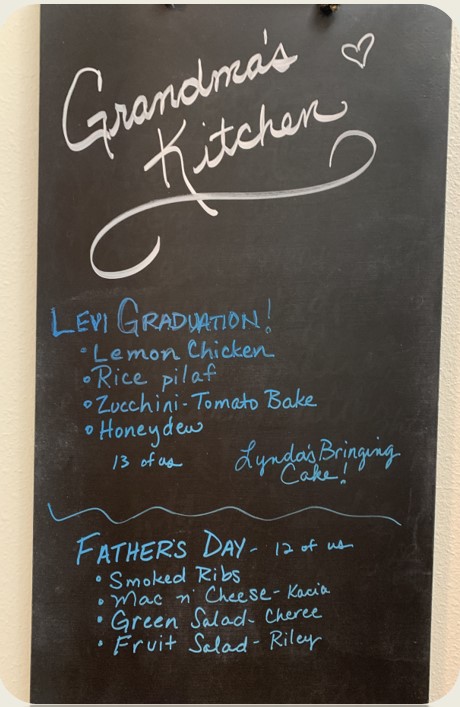 Grandma's
Kitchen
LEVI GRADUATION!
• Lemon Chicken
• Rice pilaf
• Zucchini-Tomato Bake
• Honeydew
13 of us
Lynda's Bringing
Cake!
FATHER'S DAY - 12 of us
• Smoked Ribs
• Mac n' Cheese - Kacia
• Green Salad - Cheree
• Fruit Salad - Riley